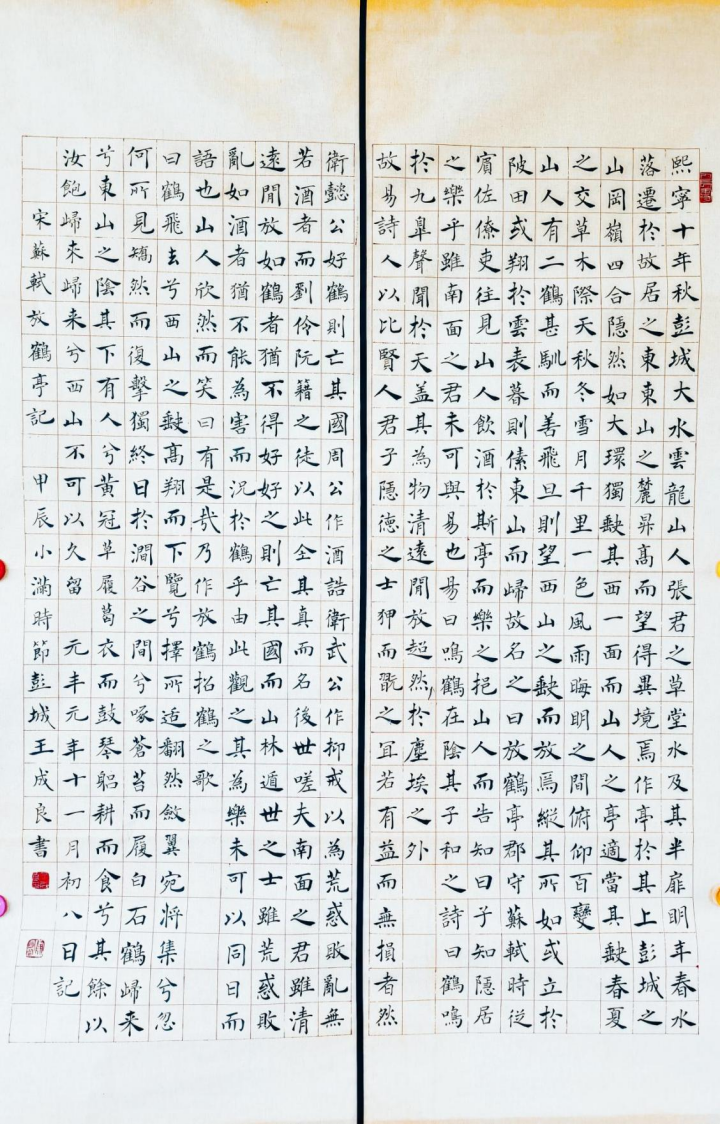 熙寧十年秋彭城大水雲龍山人張君之草堂水及其半扉明年春水
落遷於故居之東東山之麓昇高而望得異境焉作亭於其上彭城之
山岡嶺四合隱然如大環獨缺其西一面而山人之亭適當其缺春夏
之交草木際天秋冬雪月千里一色風雨晦明之間俯仰百變
山人有二鶴甚馴而善飛旦則望西山之缺而放焉縱其所如或立於
陂田或翔於雲表暮則傃東山而歸故名之曰放鶴亭郡守蘇軾時從
賓佐僚吏往見山人飲酒於斯亭而樂之挹山人而告知曰子知隱居
之樂乎雖南面之君未可與易也易曰鳴鶴在陰其子和之詩曰鶴鳴
於九皋聲聞於天蓋其為物清遠閒放超然於塵埃之外
故易詩人以比賢人君子隱德之士狎而翫之宜若有益而無損者然
衛懿公好鶴則亡其國周公作酒誥衛武公作抑戒以為荒惑敗亂無
若酒者而劉伶阮籍之徒以此全其真而名後世嗟夫南面之君雖清
遠閒放如鶴者猶不得好好之則亡其國而山林遁世之士雖荒惑敗
亂如酒者猶不能為害而況於鶴乎由此觀之其為樂未可以同日而
語也山人欣然而笑曰有是哉乃作放鶴招鶴之歌
曰鶴飛去兮西山之缺高翔而下覽兮擇所适翻然斂翼宛將集兮忽
何所見矯然而復擊獨終日於澗谷之間兮啄蒼苔而履白石鶴歸来
兮東山之陰其下有人兮黃冠草履葛衣而鼓琴躬耕而食兮其餘以
汝飽歸來歸来兮西山不可以久留 元丰元年十一月初八日記
宋蘇軾放鶴亭記 甲辰小滿時節彭城王成良書